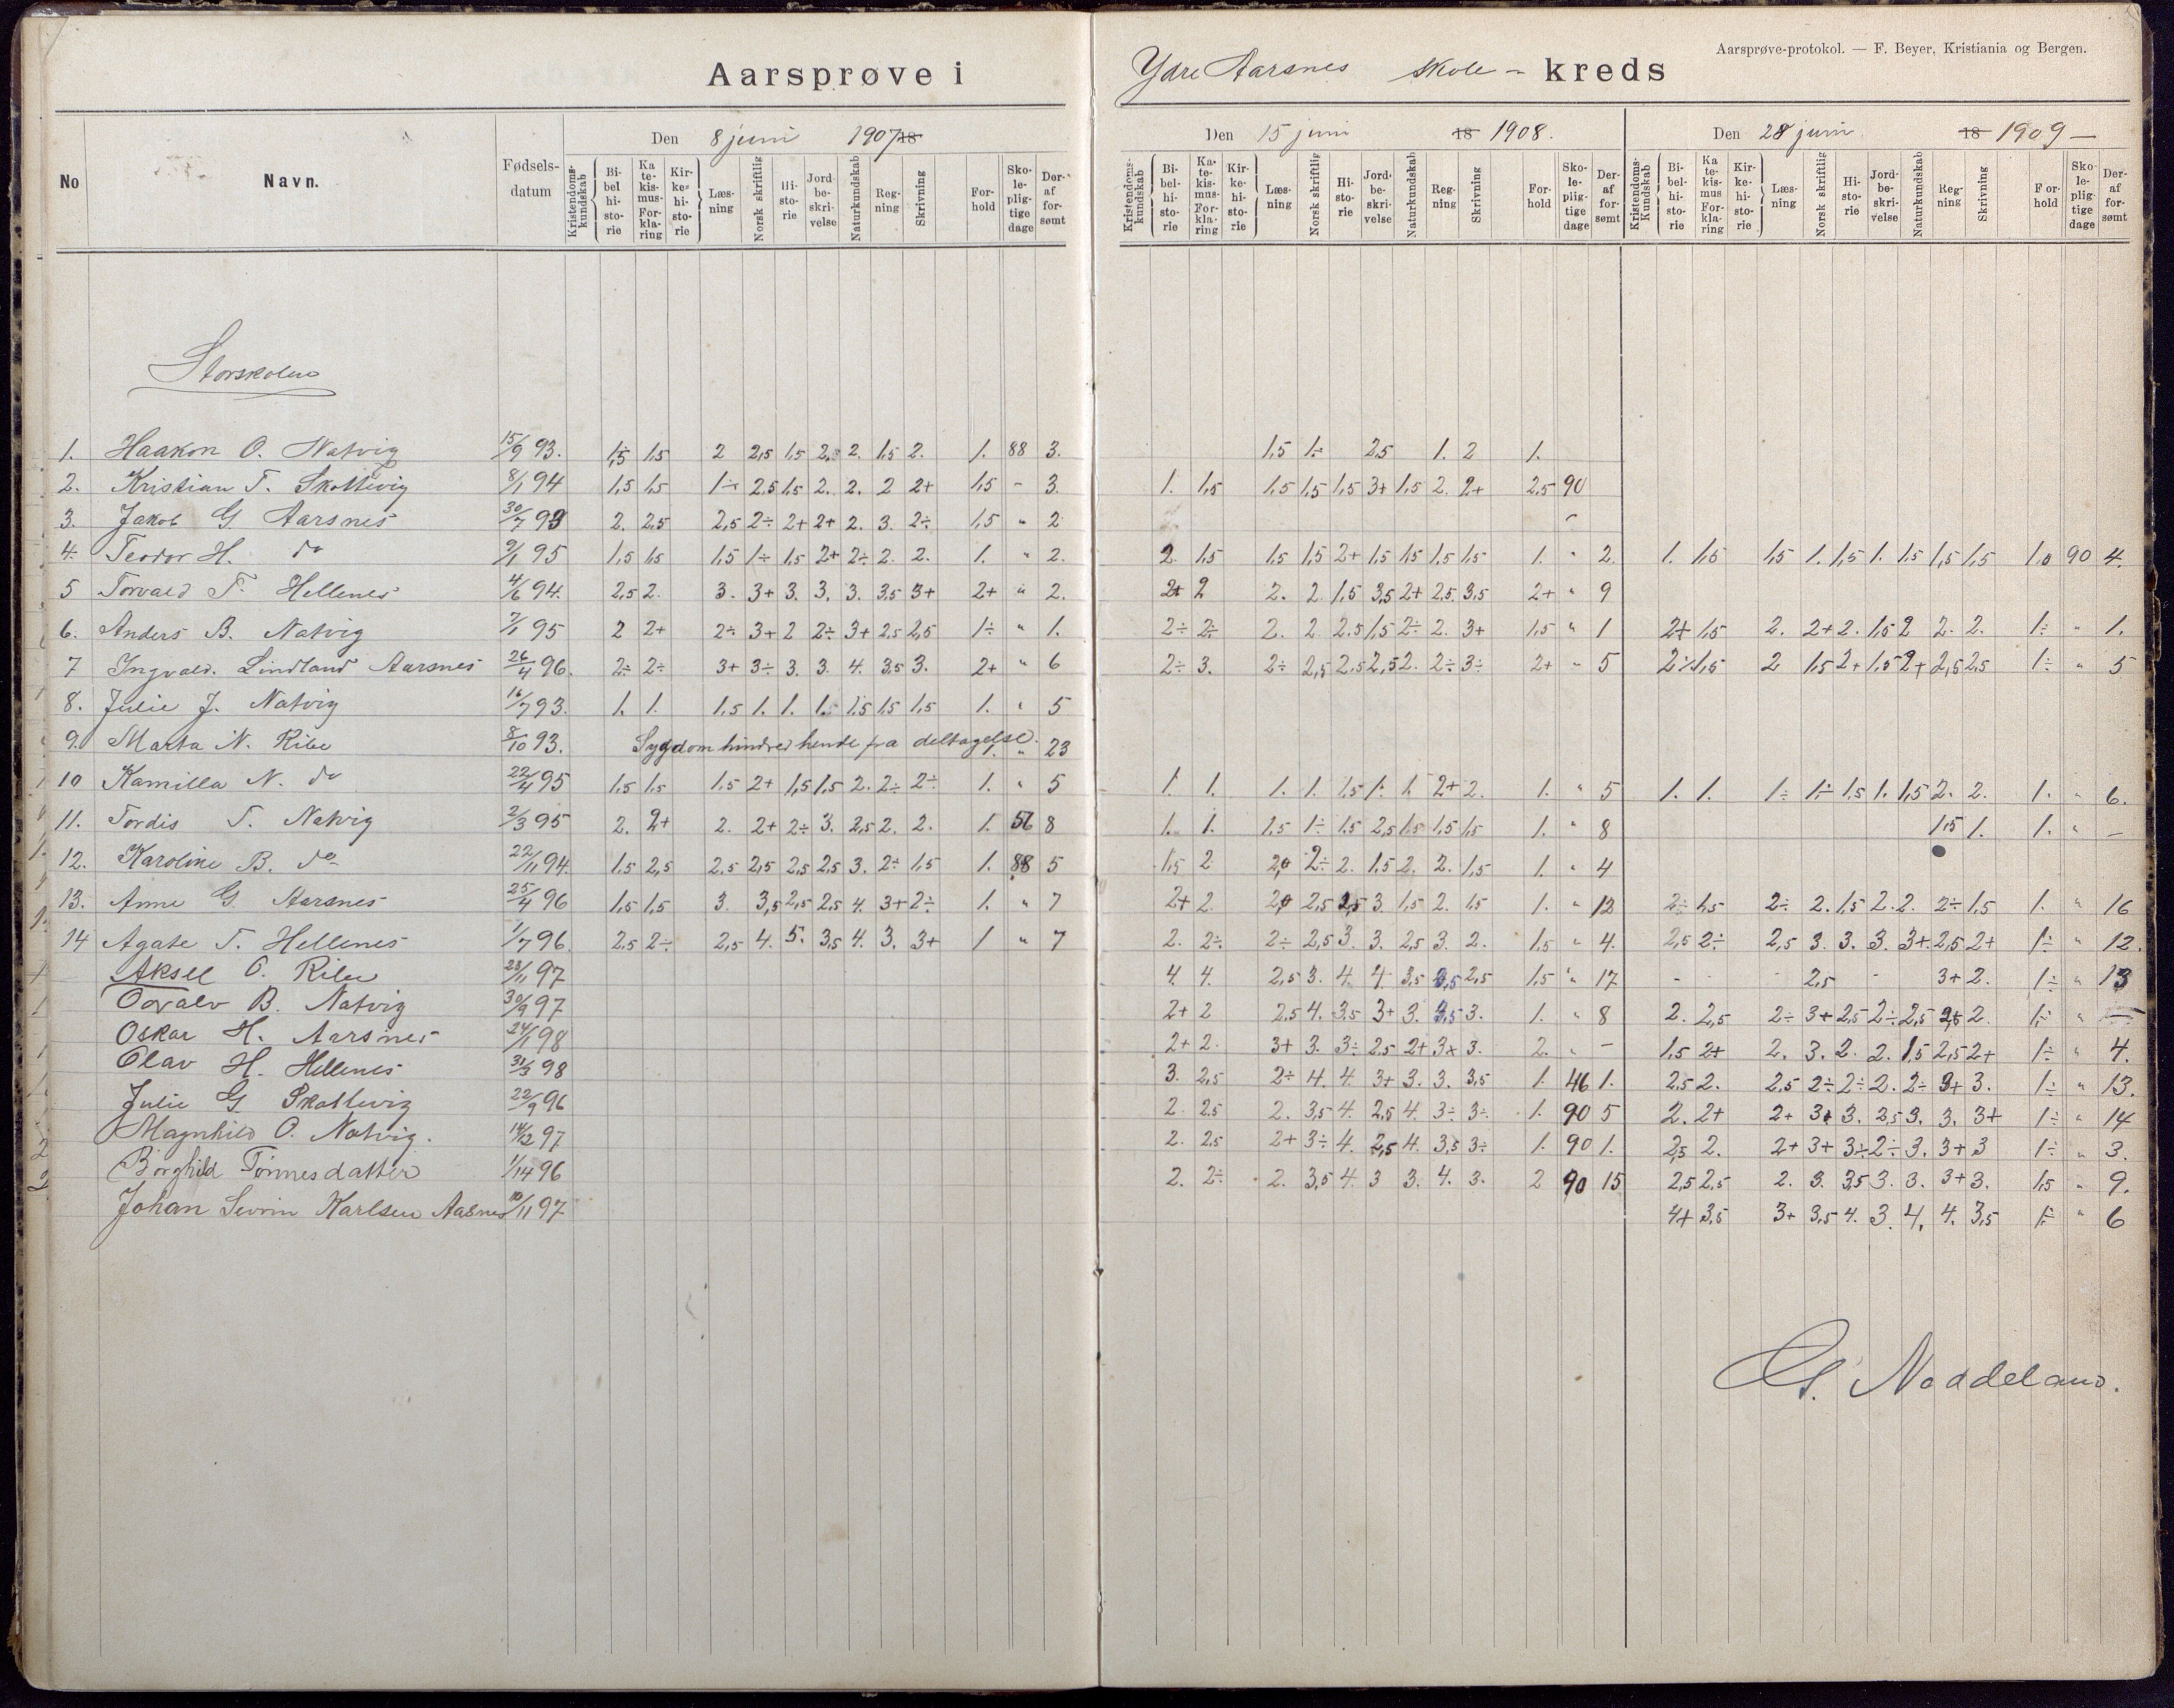 Aarsprøve-protokol. — F. Beyer, Kristiania og Bergen.
Aarsprøve i Ydre Aarsnes skole - kreds
Den 8 juni 1907 18
Den 15 juni 18 1908.
Den 28 juni 18 1909 —
No Navn. Fødsels-datum Kristendoms-kundskab Bi-bel hi-sto-rie Ka te-kis-mus-For-kla-ring Kir-ke-hi-sto-rie Læs-ning Norsk skriftlig Hi-sto-rie Jord be-skri-velse Naturkundskab Reg-ning Skrivning For-hold Sko-le-plig-tige dage Der-af for-sømt
Kristendoms-kundskab Bi-bel-hi-sto-rie Ka-te-kis-mus-For-kla-ring Kir-ke-hi-sto-rie Læs-ning Norsk skriftlig Hi-sto-rie Jord-be-skri-velse Naturkundskab Reg-ning Skrivning For-hold Sko-le-plig-tige dage Der-af for-sømt
Kristendoms-Kundskab Bi-bel-hi-sto-rie Ka te-kis-mus For-kla-ring Kir-ke-hi-sto-rie Læs-ning Norsk skriftlig Hi-sto-rie Jord-be-skri-velse Naturkundskab Reg-ning Skrivning For-hold Sko-le-plig-tige dage Der-af for-sømt
Storskolen
1. Haakon O. Natvig 15/9 93. 1,5 1,5 2 2,5 1,5 2. 2. 1,5 2. 1. 88 3. 1,5 1÷ 2,5 1. 2 1.
2. Kristian T. Skottevig 8/1 94 1,5 1,5 1÷ 2,5 1,5 2. 2. 2 2+ 1,5 - 3. 1. 1,5 1,5 1,5 1,5 3+ 1,5 2. 2+ 2,5 90
3. Jakob G Aarsnes 30/7 93 2. 2,5 2,5 2÷ 2+ 2+ 2. 3. 2÷ 1,5 " 2 -
4. Teodor H. do 9/1 95 1,5 1,5 1,5 1÷ 1,5 2+ 2÷ 2. 2. 1. " 2. 2. 1,5 1,5 1,5 2+ 1,5 1,5 1,5 1,5 1. " 2. 1. 1,5 1,5 1. 1,5 1. 1,5 1,5 1,5 1,0 90 4.
5 Torvald T. Hellenes 4/6 94. 2,5 2. 3. 3+ 3. 3. 3. 3,5 3+ 2+ " 2. 2+ 2 2. 2 1,5 3,5 2+ 2,5 3,5 2+ " 9
6. Anders B. Natvig 7/1 95 2 2+ 2÷ 3+ 2 2÷ 3+ 2,5 2,5 1÷ " 1. 2÷ 2÷ 2. 2 2,5 1,5 2÷ 2. 3+ 1,5 " 1 2+ 1,5 2. 2+ 2. 1,5 2 2. 2. 1÷ " 1.
7 Ingvald. Lindland Aarsnes 26/4 96. 2÷ 2÷ 3+ 3÷ 3. 3. 4. 3,5 3. 2+ " 6 2÷ 3. 2÷ 2,5 2,5 2,5 2. 2÷ 3÷ 2+ " 5 2÷ 1,5 2 1,5 2+ 1,5 2+ 2,5 2,5 1÷ " 5
8. Julie J. Natvig 16/7 93. 1. 1. 1,5 1. 1. 1. 1,5 1,5 1,5 1. " 5
9. Marta N. Ribe 8/10 93. Sygdom hindred hende fra deltagelse. 1. " 23
10 Kamilla N. do 22/4 95 1,5 1,5 1,5 2+ 1,5 1,5 2. 2÷ 2÷ 1. " 5 1. 1. 1. 1. 1,5 1. 1. 2+ 2. 1. " 5 1. 1. 1÷ 1÷ 1,5 1. 1,5 2. 2. 1. " 6.
11. Tordis T. Natvig 2/3 95 2. 2+ 2. 2+ 2÷ 3. 2,5 2. 2. 1. 56 8 1. 1. 1,5 1÷ 1,5 2,5 1,5 1,5 1,5 1. " 8 1,5 1. 1. " -
12. Karoline B. do 22/11 94. 1,5 2,5 2,5 2,5 2,5 2,5 3. 2÷ 1,5 1. 88 5 1,5 2 2,0 2÷ 2. 1,5 2. 2. 1,5 1. " 4
13. Anne G. Aarsnes 25/4 96 1,5 1,5 3. 3,5 2,5 2,5 4. 3+ 2÷ 1. " 7 2+ 2 2,0 2,5 2,5 3. 1,5 2. 1,5 1. " 12 2÷ 1,5 2÷ 2. 1,5 2. 2. 2÷ 1,5 1. " 16
14 Agate T. Hellenes 1/7 96. 2,5 2÷ 2,5 4. 5. 3,5 4. 3. 3+ 1 " 7 2. 2÷ 2÷ 2,5 3. 3. 2,5 3. 2. 1,5 " 4. 2,5 2÷ 2,5 3. 3. 3. 3+ 2,5 2+ 1÷ " 12.
Aksel O. Ribe 23/11 97 4. 4. 2,5 3. 4. 4. 3,5 3,5 2,5 1,5 " 17 - - - 2,5 - 3+ 2. 1÷ " 13
Toralv B. Natvig 30/9 97 2+ 2 2,5 4. 3,5 3+ 3. 3,5 3. 1. " 8 2. 2,5 2÷ 3+ 2,5 2÷ 2,5 2,5 2 1÷ " -
Oskar H. Aarsnes 24/1 98 2+ 2. 3+ 3. 3÷ 2,5 2+ 3+ 3. 2. " - 1,5 2+ 2. 3. 2. 2. 1,5 2,5 2+ 1÷ " 4.
Olav H. Hellenes 31/3 98 3. 2,5 2÷ 4. 4. 3+ 3. 3. 3,5 1. 46 1. 2,5 2. 2,5 2÷ 2÷ 2. 2÷ 3+ 3. 1÷ " 13.
Julie G. Skottevig 22/9 96 2 2,5 2. 3,5 4. 2,5 4. 3÷ 3÷ 1. 90 5 2. 2+ 2+ 3+ 3. 2,5 3. 3. 3+ 1÷ " 14
Magnhild O. Natvig. 14/2 97 2. 2,5 2+ 3÷ 4. 2,5 4. 3,5 3÷ 1. 90 1. 2,5 2. 2+ 3+ 3÷ 2÷ 3. 3+ 3 1÷ " 3.
Borghild Tønnesdatter 1/14 96 2. 2÷ 2. 3,5 4. 3 3. 4. 3. 2 90 15 2,5 2,5 2. 3. 3,5 3. 3. 3+ 3. 1,5 " 9.
Johan Sevrin Karlsen Aasnes 10/11 97 4+ 3,5 3+ 3,5 4. 3. 4. 4. 3,5 1÷ " 6
G. Noddeland.